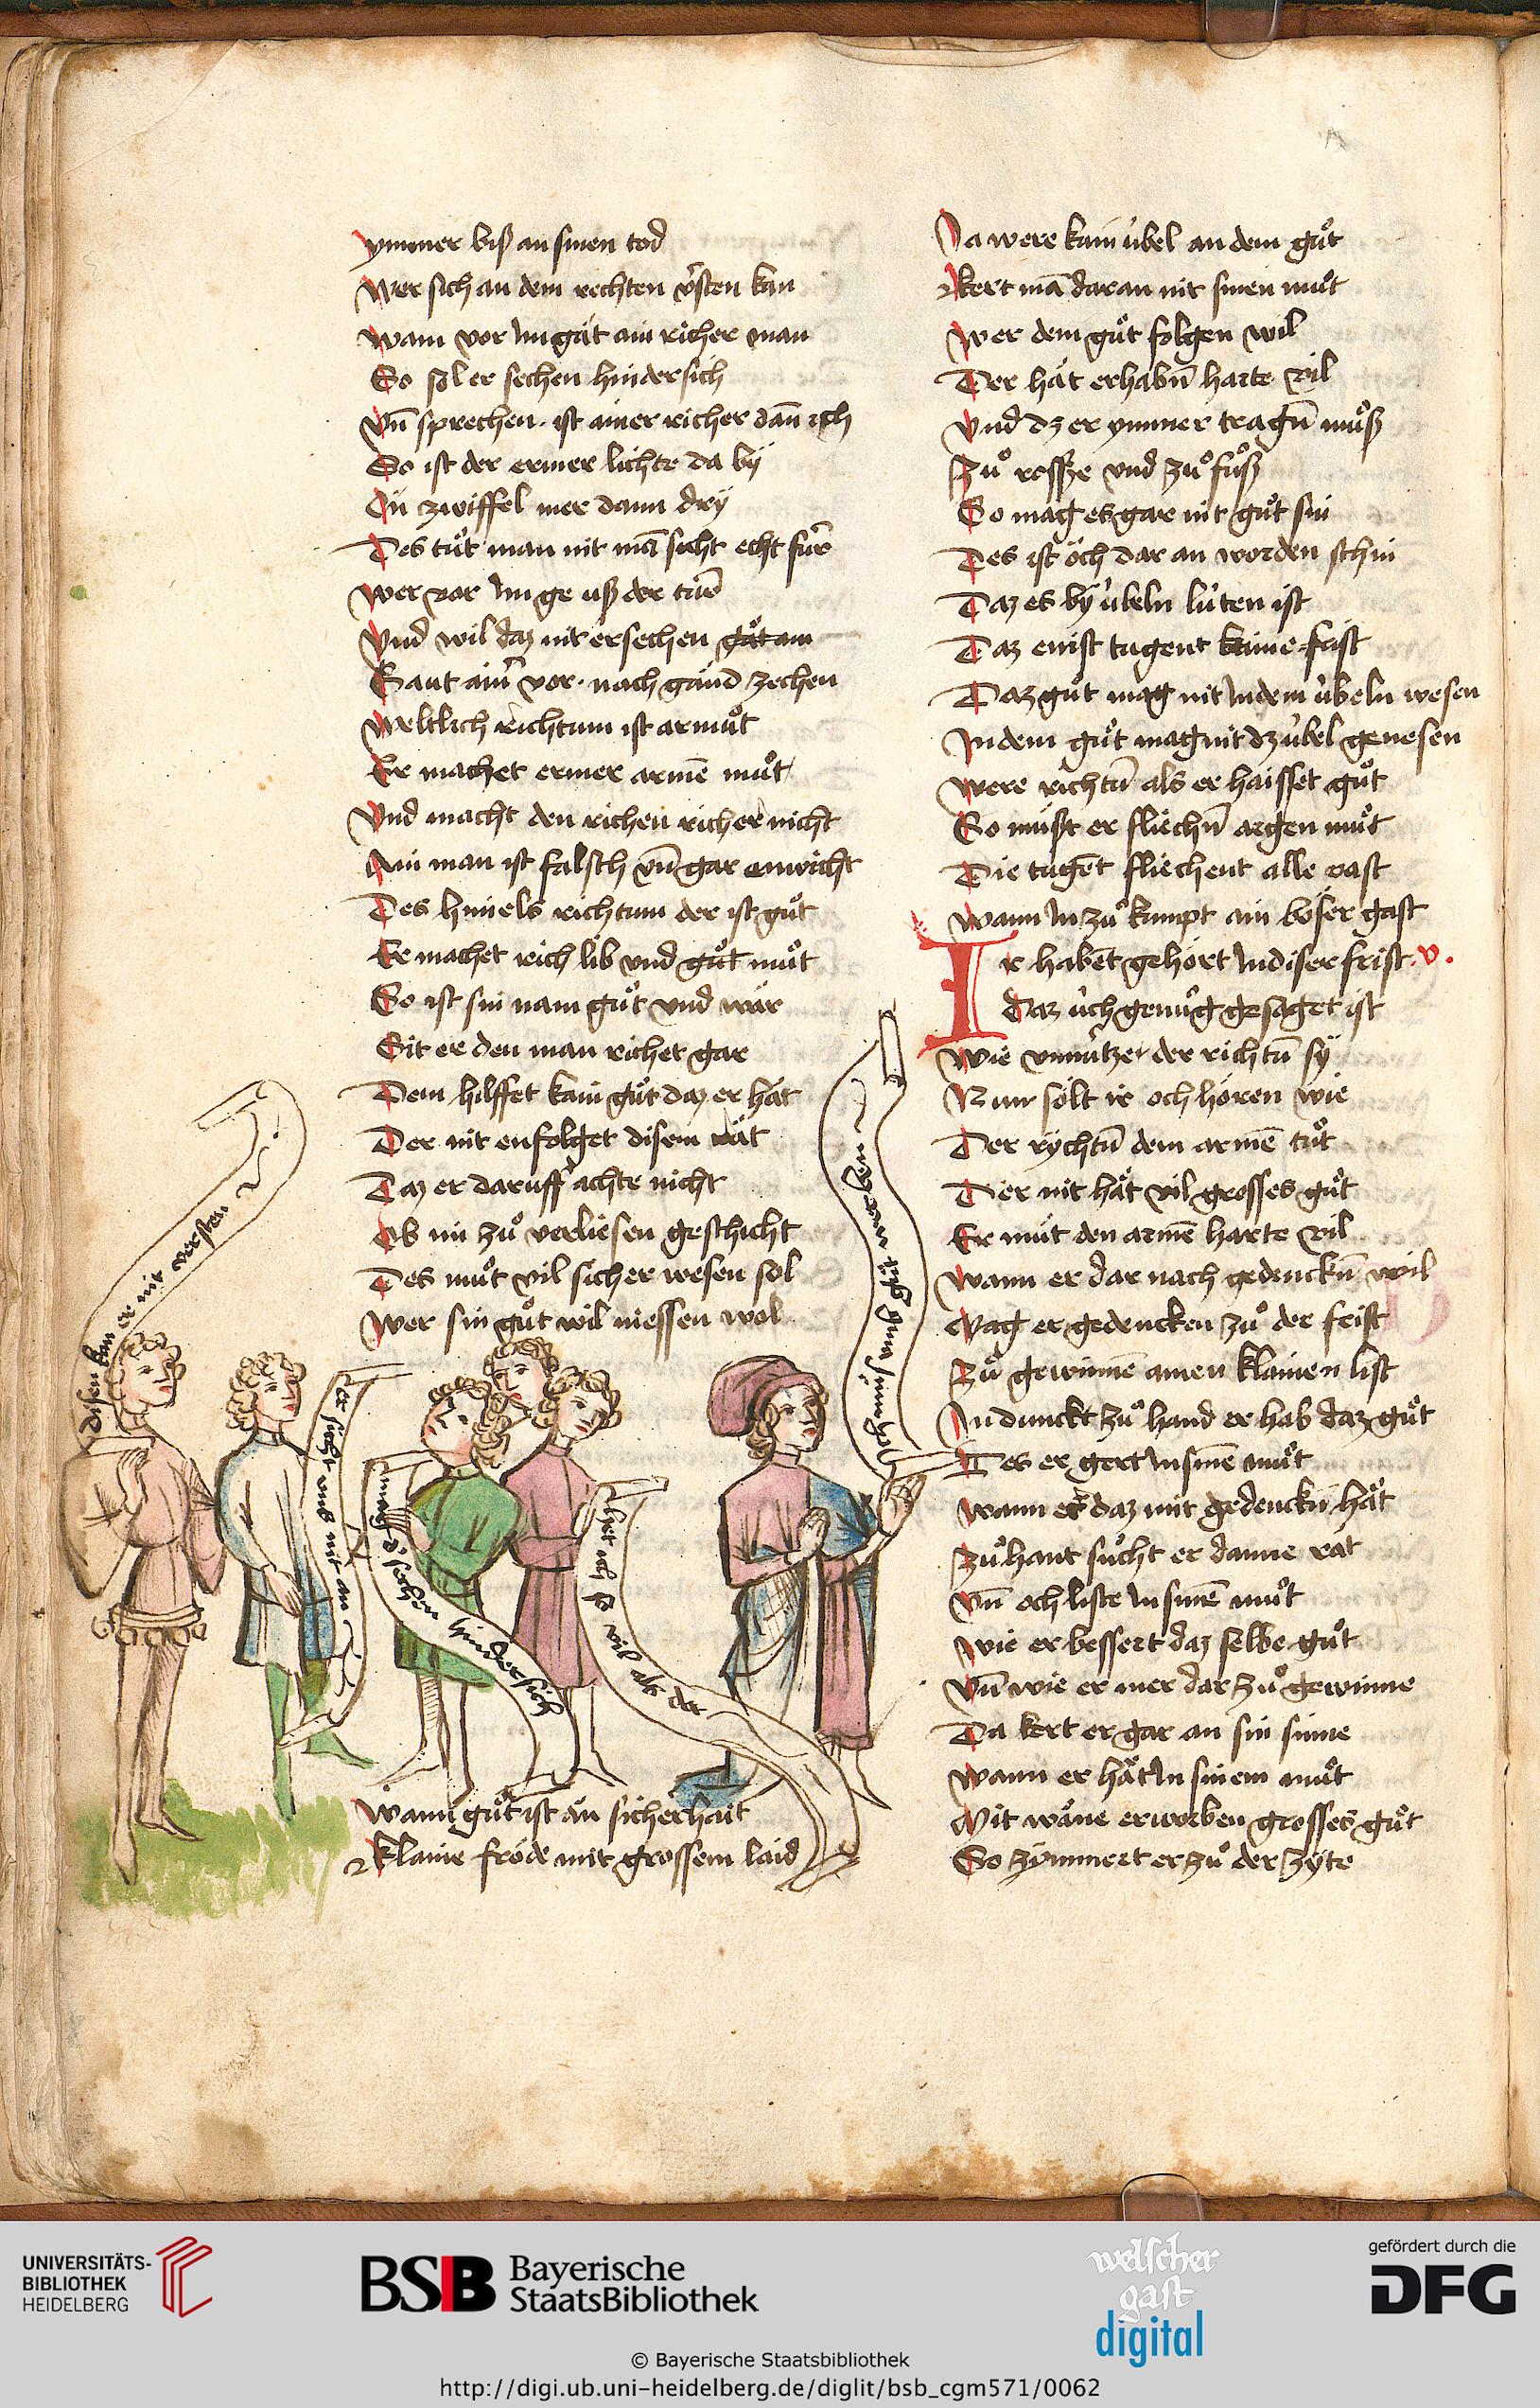 ymmer biß an sinen tod
Wer sich an dem rechten v̾sten kan
Wann vor Im gät ain richer man
So sol er sechen hindersich
Vn̄ sprechen · ist ainer richer dan̄ ich
So ist der ermer lichte da bÿ
On zwiffel mer dann drÿ
Des tuͦt man nit ma̅ sicht echt fúr
Wer vor Im ge uß der túr
Vnd wil daz nit ersechen gät am
Gant ainr̄ vor · nach gánd zechen
Weltlich richtum ist armuͦt
Er machet ermer arme̅ muͦt
Vnd macht den richen richer nicht
Ain man ist falsch vn̄ gar enwicht
Des himels richtum der ist guͦt
Er machet rich lib vnd guͦt muͦt
So ist sin nam guͦt vnd wär
Sit er den man richet gar
Dem hilffet kain guͦt daz er hät
Der nit enfolget disem rät
Daz er daruff achte nicht
Ob im zuͦ verliesen geschicht
Des muͦt vil sicher wesen sol
Wer sin guͦt wil niessen wol
disen kan er nit versten
er sicht uns nit an
mag ich sechen hindersich
het ich so vil als der
Ich mins guͦtz nit wegen
Wann guͦt ist än sicherhait
Klaine froͤde mit grossem laid
Da were kain úbel an dem guͦt
Kert ma̅ daran nit sinen muͦt
Wer dem guͦt folgen wil
Der hät erhabn̄ harte vil
Vnd dz er ymmer tragn̄ muͦß
Zuͦ rosse vnd zuͦ fuͦß
So mag es gar nit guͦt sin
Des ist och dar an worden schin
Daz es bÿ úbeln lúten ist
Daz enist tugent kaine frist
Daz guͦt mag nit In dem úbeln wesen
In dem guͦt mag nit dz úbel genesen
Were richtu̅ als er haisset guͦt
So muͤßt er fliechn̄ argen muͦt
Die tuge̅t fliechent alle vast
Wann In zuͦ kumpt ain boͤser gast
Ir habe̅t gehoͤrt In diser frist · v.
Daz úch genuͦg gesaget ist
Wie vnnútze der richtu̅ sÿ
Nun soͤlt ir och hoͤren wie
Der rychtu̅ dem arme̅ tuͦt
Der nit hät vil grosses guͦt
Er muͤt den arme̅ harte vil
Wann er dar nach gedenckn̄ wil
Mag er gedencken zuͦ der frist
Zuͦ gewinne̅ ainen klainen list
In dunckt zuͦ hand er hab daz guͦt
Des er gert In sine̅ muͦt
Wann er daz mit gedenckn̄ hät
Zuͦ hant suͦcht er danne rät
Vn̄ och liste In sine̅ muͦt
Wie er bessert daz selbe guͦt
Vn̄ wie er mer dar zuͦ gewinne
Da kert er gar an sin sinne
Wann er hät In sinem muͦt
Mit wäne erworben grosses guͦt
So zimmert er zuͦ der zyte
UNIVERSITÄTS-
BIBLIOTHEK
HEIDELBERG
BSB Bayerische
StaatsBibliothek
welscher
gast
digital
gefördert durch die
DFG
© Bayerische Staatsbibliothek
http://digi.ub.uni-heidelberg.de/diglit/bsb_cgm571/0062